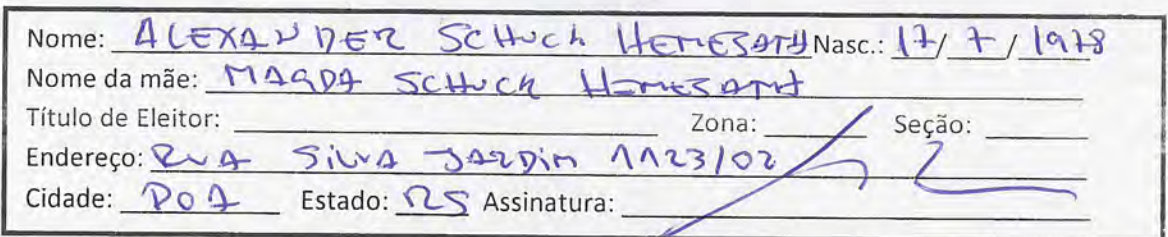 Nome: ALEXANDER SCHUCK HEMESATH Nasc.: 17/ 7 / 1978
Nome da mãe: MAGDA SCHUCK HEMESATH
Título de Eleitor: Zona: Seção:
Endereço: RUA SILVA JARDIM 1123/02
Cidade: POA Estado: RS Assinatura: